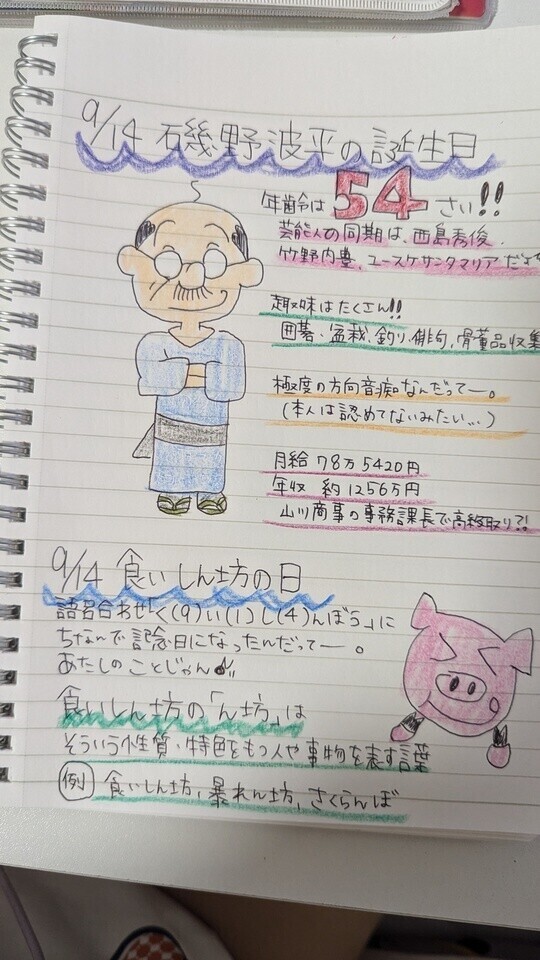 9/14 磯野波平の誕生日
年齢は 54 さい!!
芸能人の同期は、西島秀俊、
竹野内豊、ユースケサンタマリアだ
趣味はたくさん!!
囲碁・盆栽、釣り、俳句、骨董品収集
極度の方向音痴なんだってー。
(本人は認めてないみたい…)
月給 78万5420円
年収 約1256万円
山川商事の事務課長で高給取り?!
9/14 食いしん坊の日
語呂合わせ「く(9)い(1)し(4)んぼう」に
ちなんで記念日になったんだってー。
あたしのことじゃん!!
食いしん坊の「ん坊」は
そういう性質・特色をもつ人や事物を表す言葉
例 食いしん坊、暴れん坊、さくらんぼ